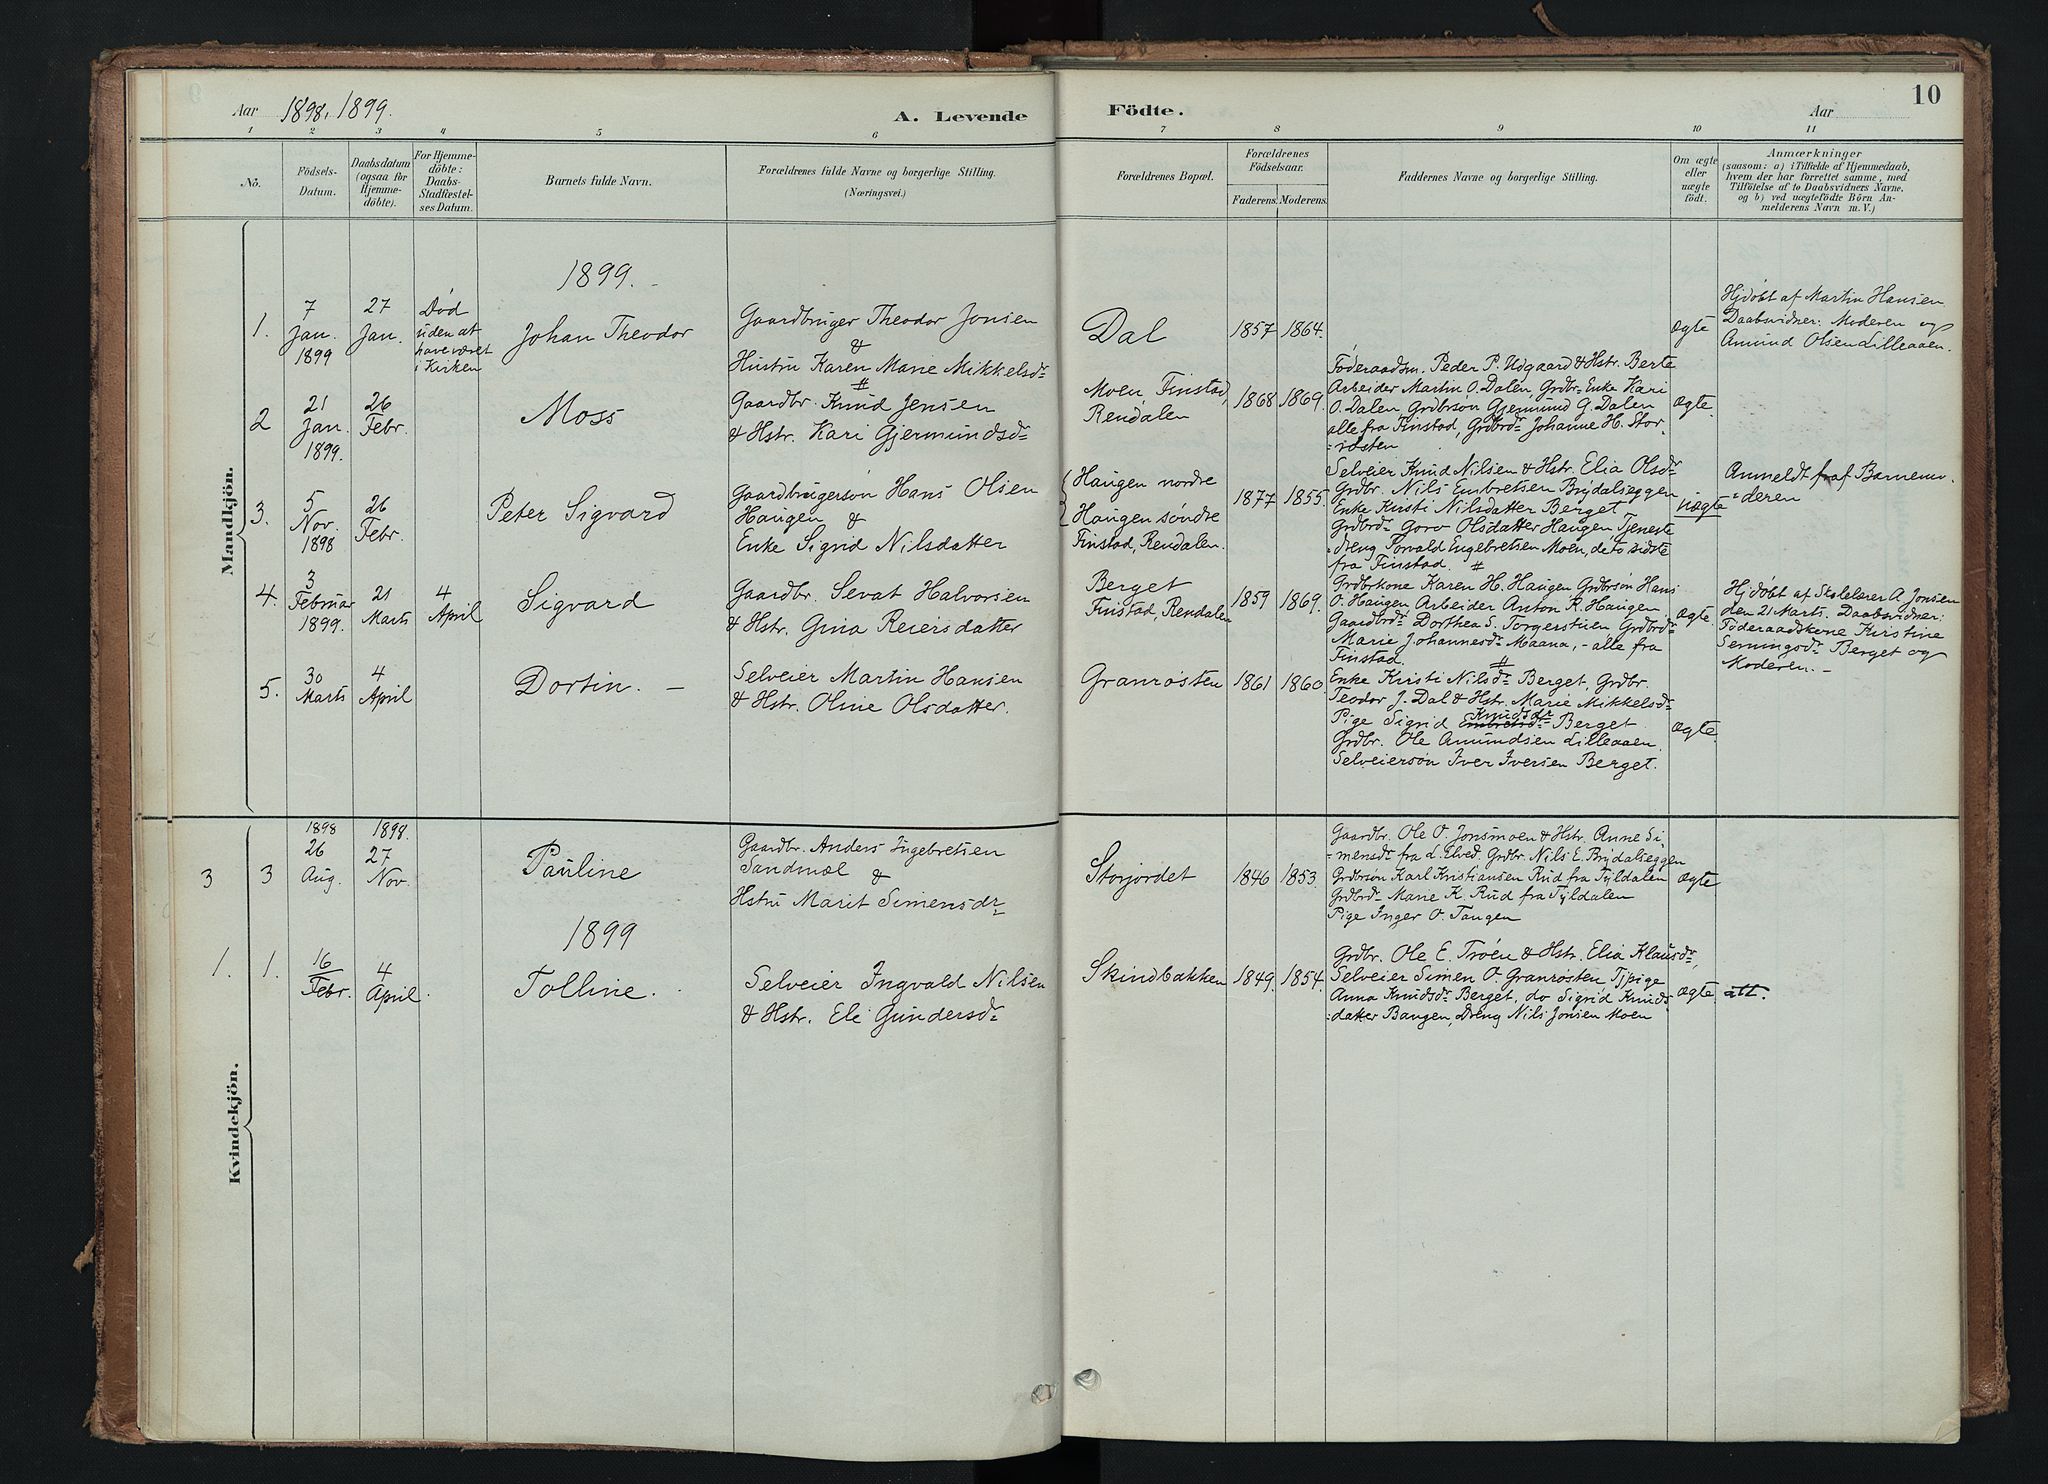 Aar 1898, 1899.
A. Levende
Födte.
Aar
10
1 2 3 4 5 6 7 8 9 10 11
No.
Födsels-
Datum.
Daabsdatum
(ogsaa for
Hjemme-
döbte).
For Hjemme-
döbte:
Daabs-
Stadfæstel-
ses Datum.
Barnets fulde Navn.
Forældrenes fulde Navne og borgerlige Stilling.
(Næringsvei.)
Forældrenes Bopæl.
Forældrenes
Födselsaar.
Faderens.
Moderens.
Faddernes Navne og borgerlige Stilling.
Om ægte
eller
uægte
födt.
Anmærkninger
(saasom: a) i Tilfælde af Hjemmedaab,
hvem der har forrettet samme, med
Tilföielse af to Daabsvidners Navne,
og b) ved uægtefödte Börn An-
melderens Navn m. V.)
Mandkjön.
1899.
1.
7
Jan.
1899
27
Jan.
Død
uden at
have været
i Kirken
Johan Theodor
Gaardbruger Theodor Jonsen
&
Hustru Karen Marie Mikkelsdr
Dal
1857
1864.
ægte
Hjdøbt af Martin Hansen
Daabsvidner: Moderen og
Amund Olsen Lilleaaen.
2
21
Jan.
1899.
26
Febr.
Moss
Gaardbr. Knud Jensen
& Hstr. Kari Gjermundsdr
Moen, Finstad,
Rendalen
1868
1869.
Föderaadsm. Peder P. Udgaard & Hstr. Berte
Arbeider Martin O. Dalen Grdbr. Enke Kari
O. Dalen Grdbrsøn Gjermund G. Dalen
alle fra Finstad, Grdbrdr Johanne H. Stor-
-røsten
Ægte.
3.
5
Nov.
1898
26
Febr.
Peter Sigvard
Gaardbrugersøn Hans Olsen
Haugen &
Enke Sigrid Nilsdatter
Haugen nordre
Haugen søndre
Finstad, Rendalen.
1877
1855.
Selveier Knud Nilsen & Hstr. Elia Olsdr
Grdbr. Nils Embretsen Brydalseggen
Enke Kirsti Nilsdatter Berget
Grdbrdr Goro Olsdatter Haugen Tjeneste
-dreng Torvald Engebretsen Moen, de to sidste
fra Finstad. #
uægte
Anmeldt af Barnemo-
deren
4.
3
Februar
1899.
21
Marts
4
April
Sigvard
Gaardbr. Sevat Halvorsen
& Hstr. Gina Reiersdatter
Berget
Finstad, Rendalen
1859
1869.
Grdbrkone Karen H. Haugen Grdbrsøn Hans
O. Haugen, Arbeider Anton R. Haugen
Gaardbrdr Dorthea S. Torgerstuen Grdbrdr
Marie Johannesdr Maana, - alle fra
Finstad. #
Ægte.
Hjdøbt af Skolelærer A. Jonsen
den 21 Marts. Daabsvidner:
Föderaadskone Kirstine
Berget og
Moderen. -
5.
30
Marts
4
April
Dortin. -
Selveier Martin Hansen
& Hstr. Oline Olsdatter.
Granrøsten
1861
1860
Enke Kirsti Nilsdr Berget, Grdbr.
Teodor J. Dal & Hstr. Marie Mikkelsdr
Pige Sigrid Knudsdr Berget
Grdbr. Ole Amundsen Lilleaaen
Selveiersøn Iver Iversen Berget.
Ægte.
Kvindekjön.
3
3
1898
26
Aug.
1898.
27
Nov.
Pauline
Gaardbr. Anders Ingebretsen
Sandmæl &
Hstru Marit Simensdr
Storjordet
1846
1853.
Gaardbr. Ole O. Jonsmoen & Hstr. Anne Si-
-mensdr fra L. Elved. Grdbr. Nils E. Brydalseggen
Grdbrsøn Karl Kristiansen Rud fra Tyldalen
Grdbrdr Marie K. Rud fra Tyldalen
Pige Inger O. Tangen
ægte
1899
1.
1.
16
Febr.
4
April.
Tolline.
Selveier Ingvald Nilsen
& Hstr. Eli Gundersdr
Skindbakken
1849.
1854.
Grdbr. Ole E. Trøen & Hstr. Elia Klausdr,
Selveier Simen O. Granrøsten Tjpige
Anna Knudsdr Berget, do Sigrid Knuds
-datter Bangen, Dreng Nils Jonsen Moen
Ægte.
att.